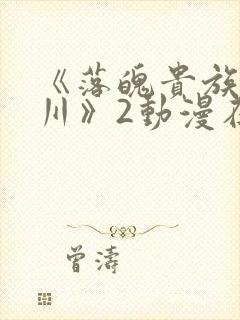 《落魄貴族
川》2動漫在
曾濤